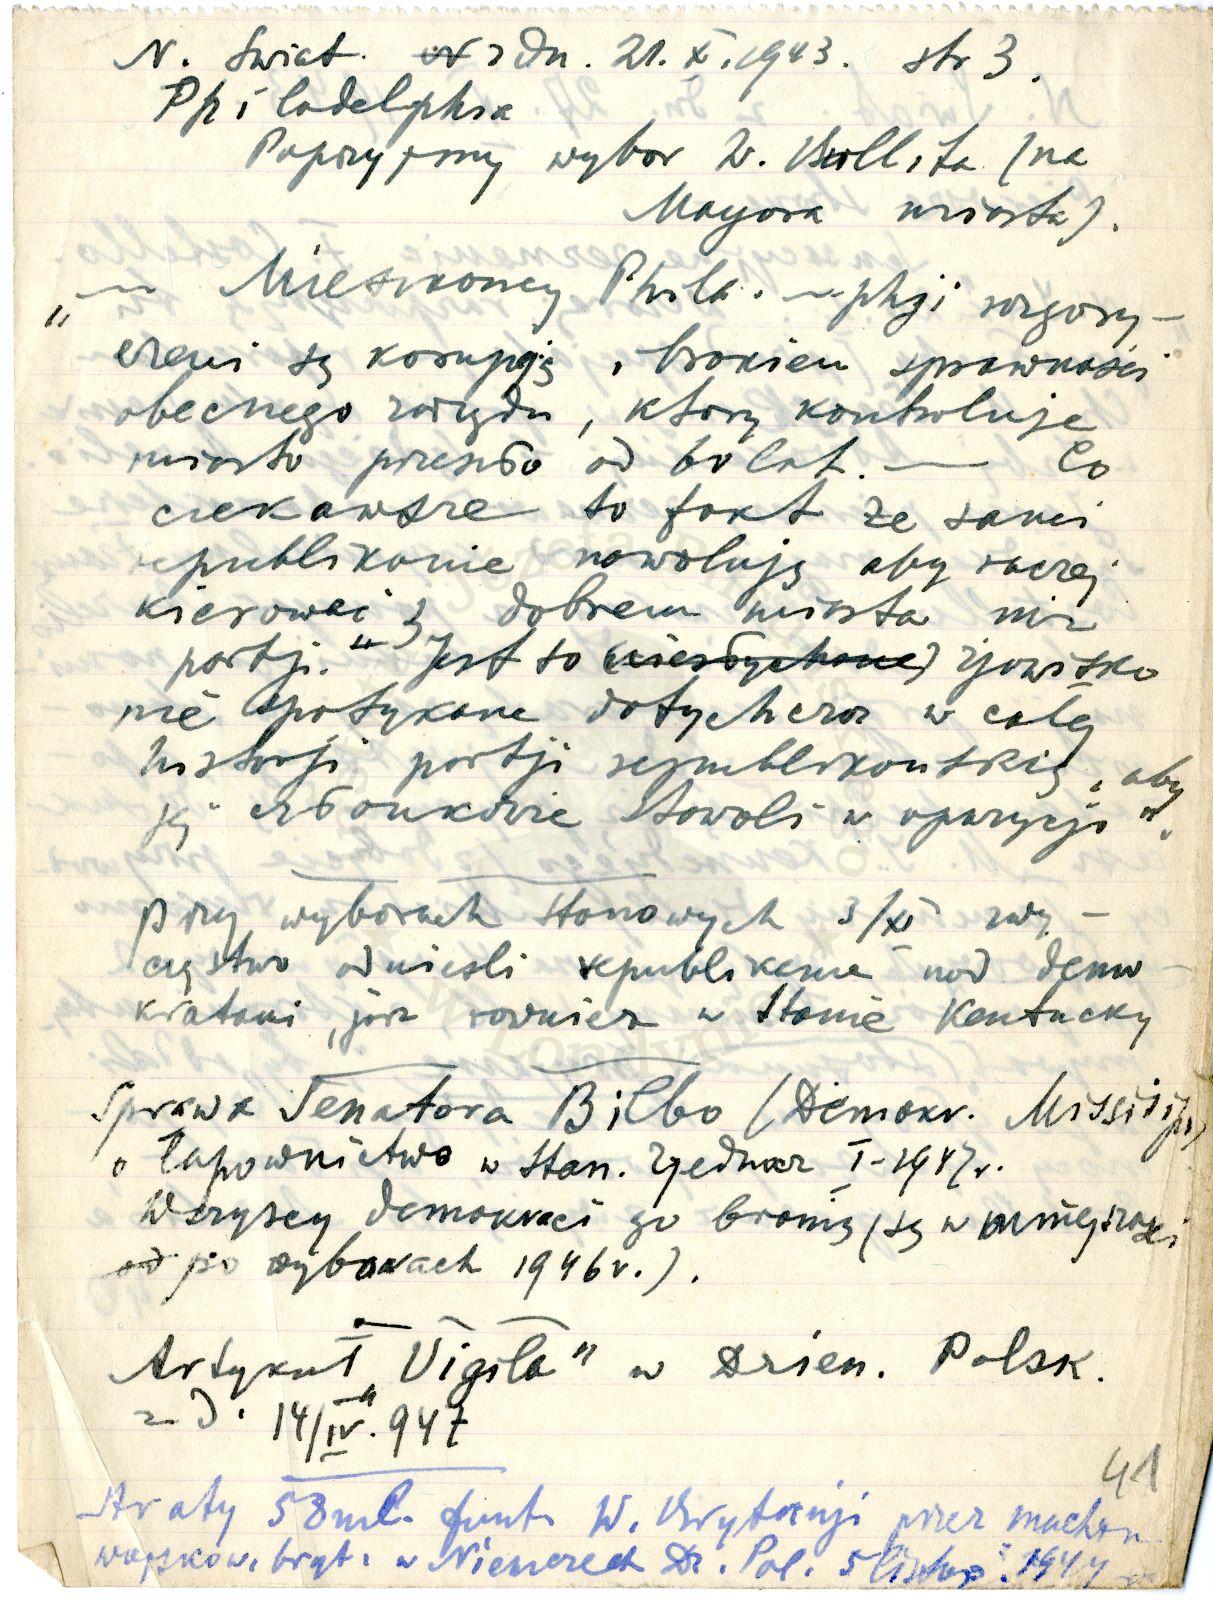 N. Świat. z dn. 21. X. 1943. str 3.
Philadelphia
Poprzyjmy wybor W. Bullita (na
Mayora miasta).
„— Mieszkancy Phila. — phji rozgory-
czeni są korupcją, brakiem sprawności
obecnego zarządu, ktory kontroluje
miasto przeszło od 60 lat. — Co
ciekawsze to fakt że sami
republikanie nawołują aby raczej
kierować się dobrem miasta niz
partji." Jest to (niesłychane) zjawisko
nie spotykane dotychczas w całej
historji partji republikanskiej, aby
jej członkowie stawali w opozycji".
Przy wyborach stanowych 3/XI zwy-
cięstwo odniesli republikanie nad demo-
kratami, jak rownież w Stanie Kentucky
Sprawa Senatora Bilbo (Demokr. Missisipi)
„Łapownictwo w Stan. Zjednocz I-1947r.
Wszyscy demokraci go bronią (są w mniejszości
od po wyborach 1946r.).
Artykuł „Vigila" w Dzien. Polsk.
z d. 14/IV. 947
Straty 58 mil. funt. W. Brytanji przez machin
wojskow. bryt. w Niemczech Dz. Pol. 5 listop. 1947
41